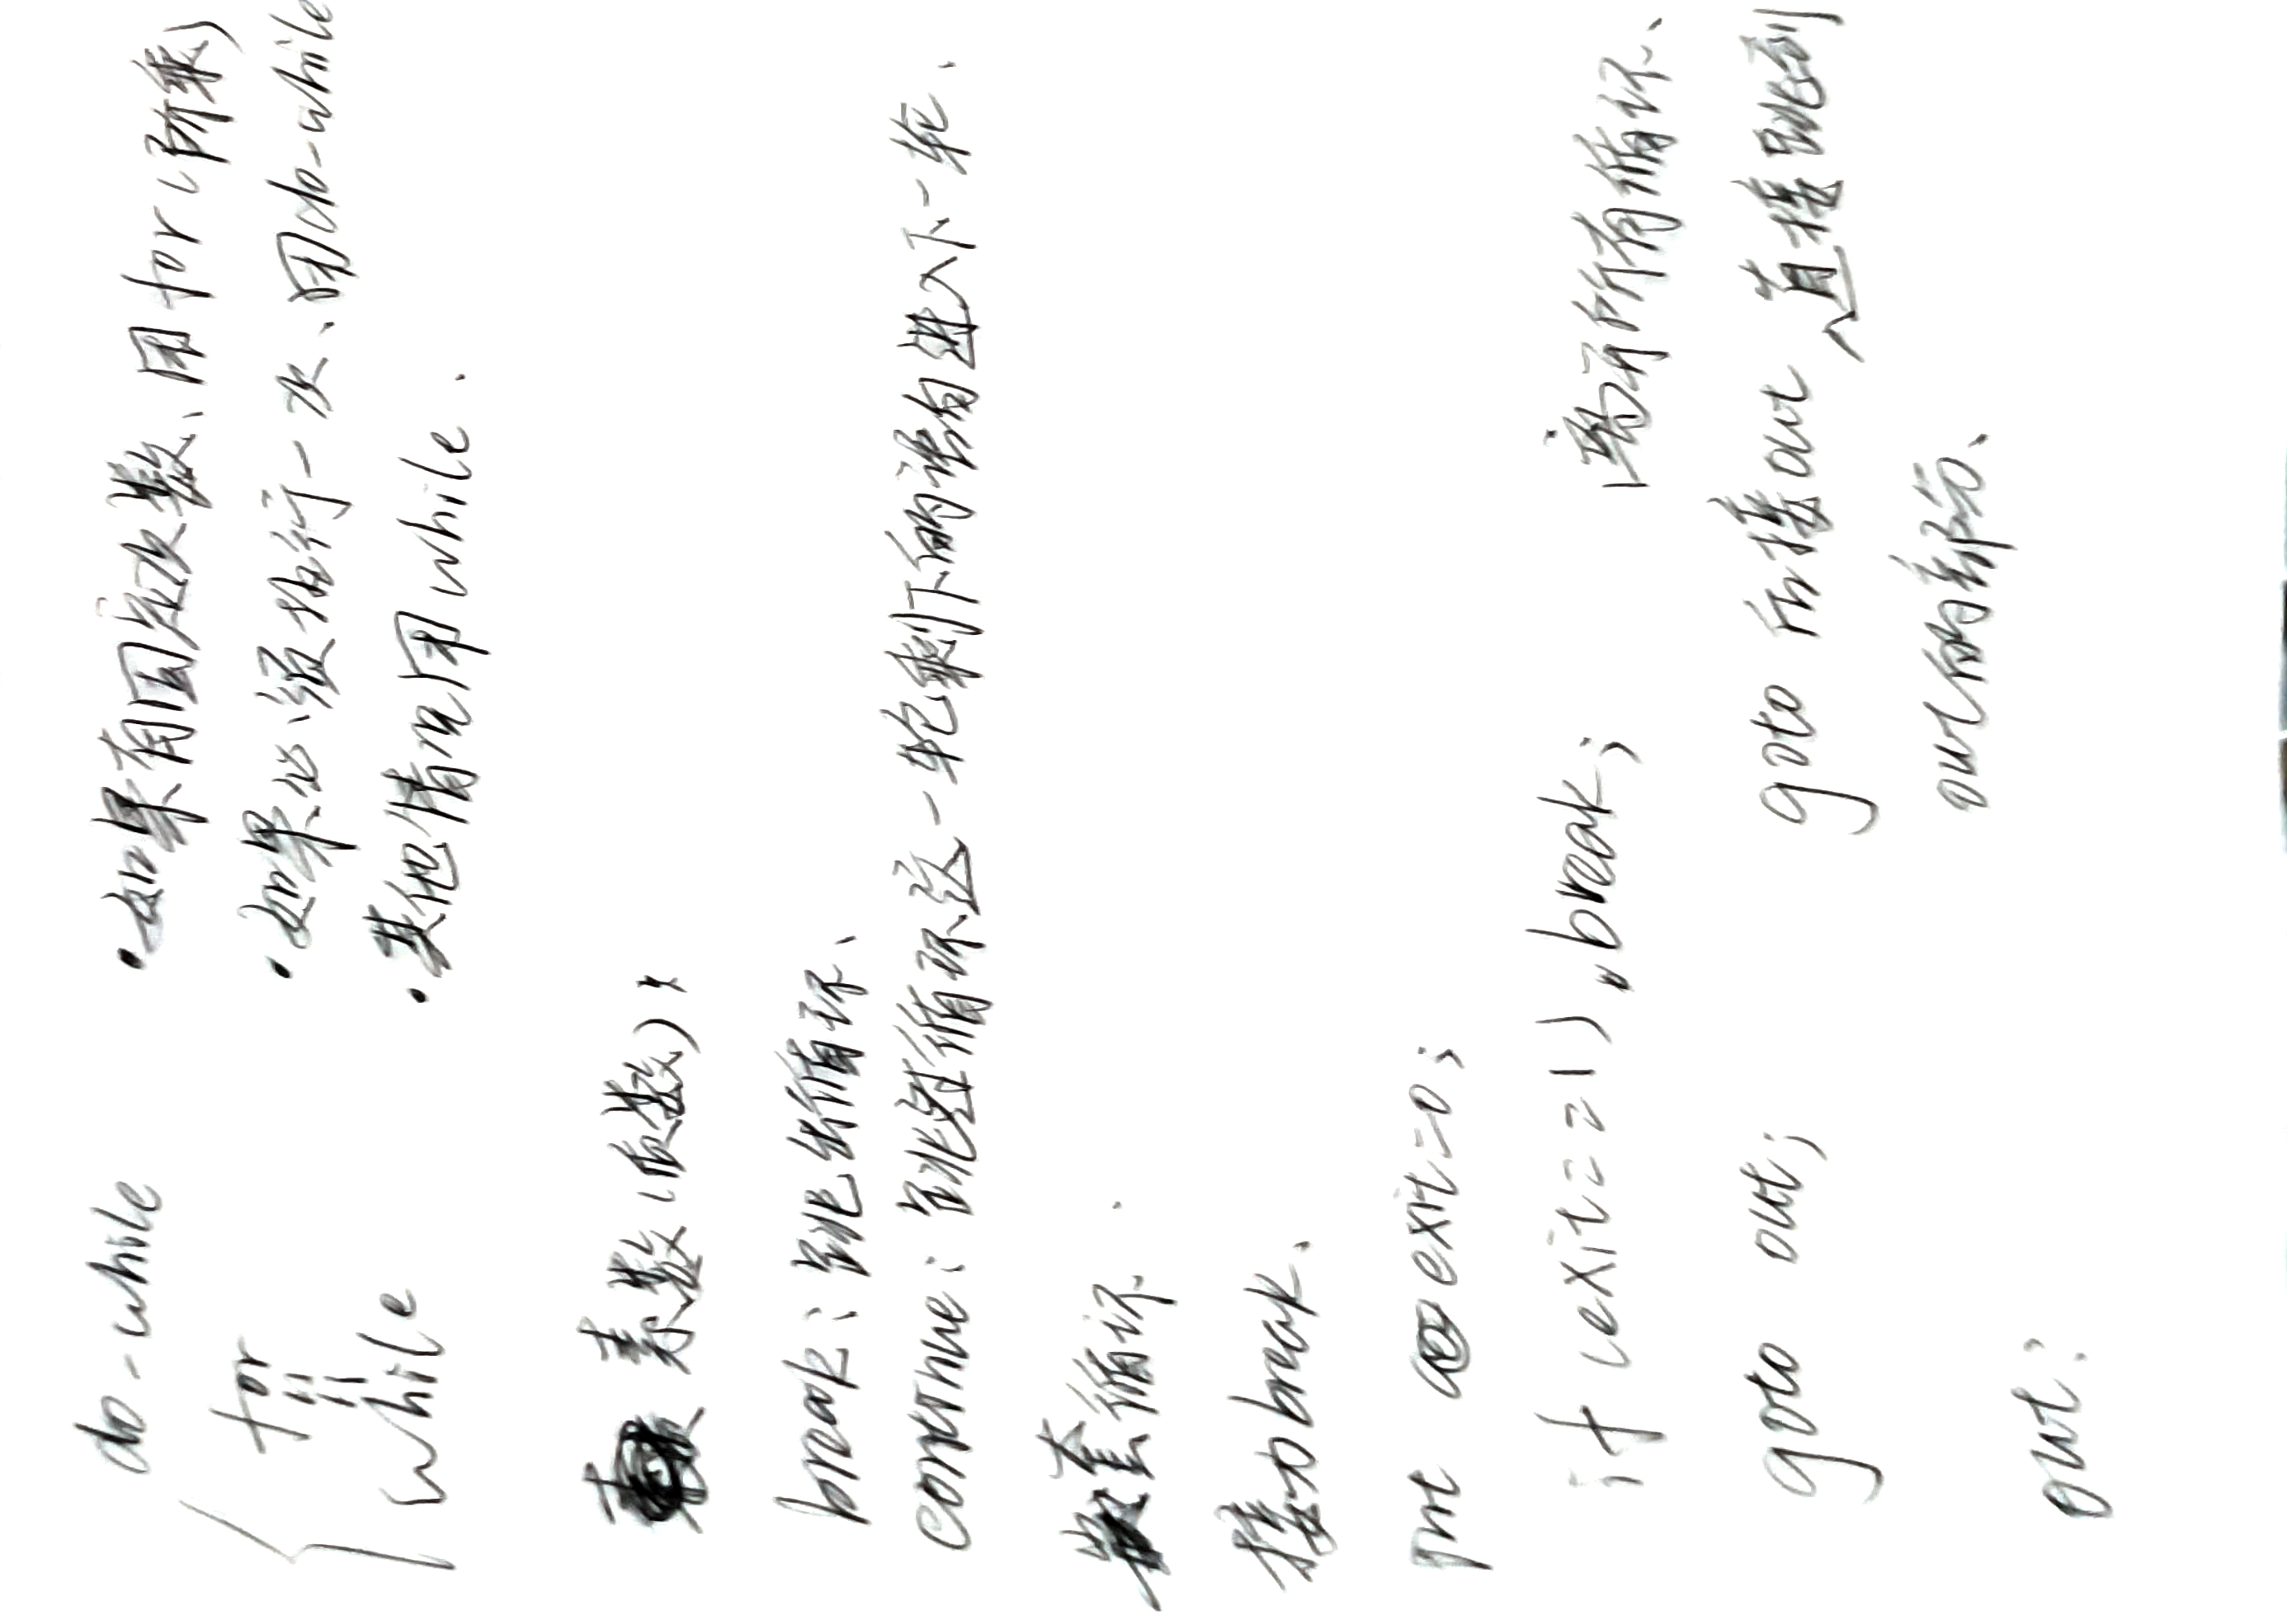 do-while
for
while
·如果有固定次数、用for(阶乘)
·如果必须执行一次、用do-while
·其他情况用while.
素数(质数):
break: 跳出循环、
continue: 跳过循环这一轮剩下的语句进入下一轮.
嵌套循环.
接力break.
int exit=0;
if (exit==1) break; 离开所有循环、
goto out; goto 所接out 直接跳到
out: out的部分、